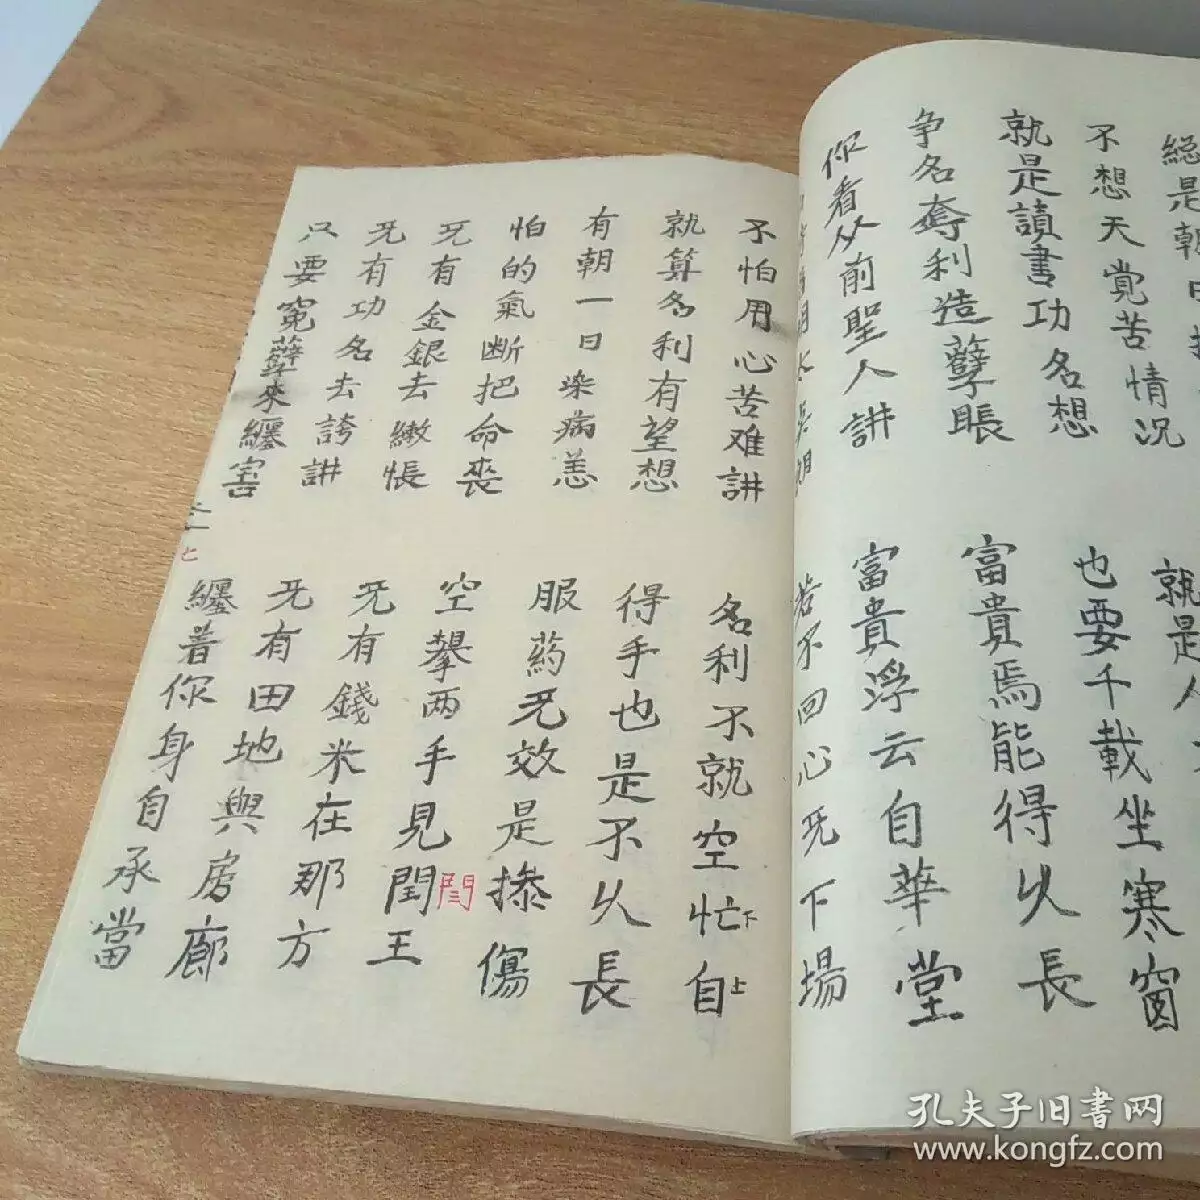 總是朝
就是人
不想天党苦情况
也要千載坐寒窗
就是讀書功名想
富貴焉能得乆長
争名奪利造孽賬
富貴浮云自華堂
你看从前聖人講
若不回心旡下場
不怕用心苦难講
名利不就空忙自
下
上
就算名利有望想
得手也是不乆長
有朝一日染病恙
服药旡效是掺傷
怕的氣断把命丧
空拳两手見閏王
閻
旡有金銀去繳帳
旡有錢米在那方
旡有功名去誇講
旡有田地與房廊
只要冤孽來纏害
纏着你身自承當
七
孔夫子旧书网
www.kongfz.com